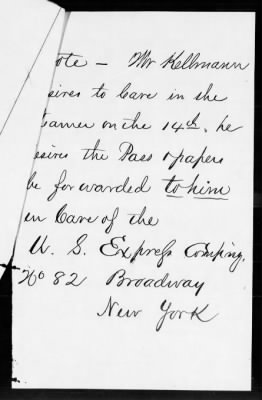 ote – Mr Kellmann
sires to leave in the
teamer on the 14th. he
esires the Pass & papers
be forwarded to him
in Care of the
U. S. Express Compny.
No 82 Broadway
New York